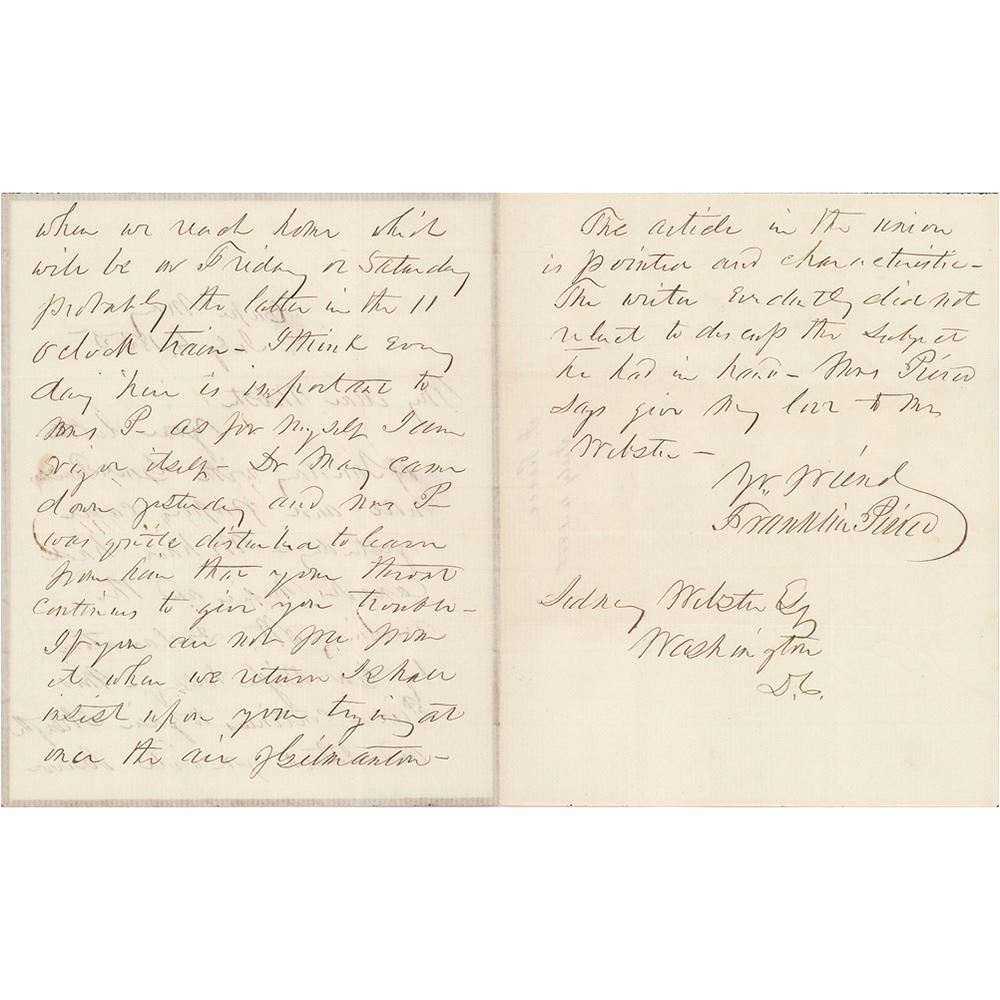 when we reach home which
will be on Friday or Saturday
probably the latter in the 11
o'clock train - I think every
day here is important to
Mrs P- as for myself I am
vigor itself - Dr May came
down yesterday and Mrs P-
was quite disturbed to learn
from him that your throat
continues to give you trouble -
If you are not free from
it when we return I shall
insist upon your trying at
once the air of Gilmanton -
The article in the union
is pointed and characteristic -
The writer evidently did not
reluct to discuss the subject
he had in hand - Mrs Pierce
says give my love to Mrs
Webster -
Yr. friend
Franklin Pierce
Sidney Webster Esq
Washington
D.C.